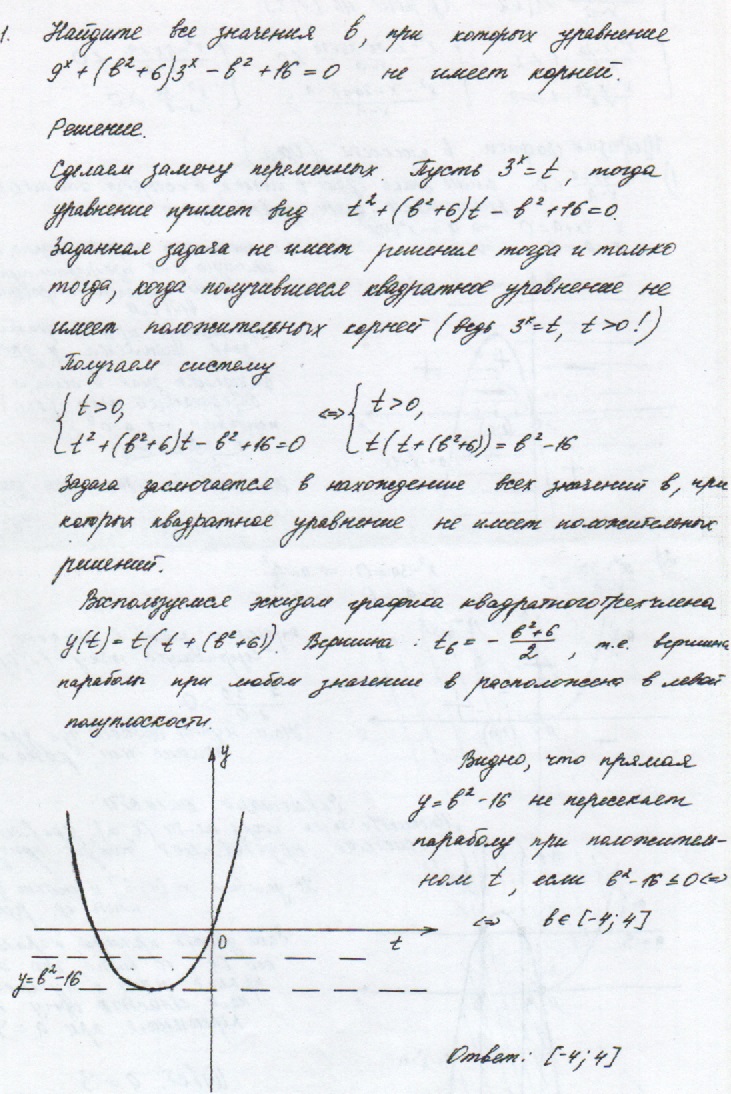 1. Найдите все значения в, при которых уравнение
9ˣ + (в²+6)3ˣ – в² + 16 = 0 не имеет корней.
Решение.
Сделаем замену переменных. Пусть 3ˣ = t, тогда
уравнение примет вид t² + (в²+6)t – в² + 16 = 0.
Заданная задача не имеет решение тогда и только
тогда, когда получившееся квадратное уравнение не
имеет положительных корней (ведь 3ˣ = t, t > 0!)
Получаем систему
{ t > 0, <=> { t > 0,
t² + (в²+6)t – в² + 16 = 0 t(t + (в²+6)) = в² – 16
Задача заключается в нахождение всех значений в, при
которых квадратное уравнение не имеет положительных
решений.
Воспользуемся эскизом графика квадратного трехчлена
y(t) = t(t + (в²+6)). Вершина: tв = – в²+6/2, т.е. вершина
параболы при любом значение в расположена в левой
полуплоскости.
y
Видно, что прямая
y = в² – 16 не пересекает
параболу при положитель-
ном t, если в² – 16 ≤ 0 <=>
<=> в ∈ [-4; 4]
0
t
y = в² – 16
Ответ: [-4; 4]